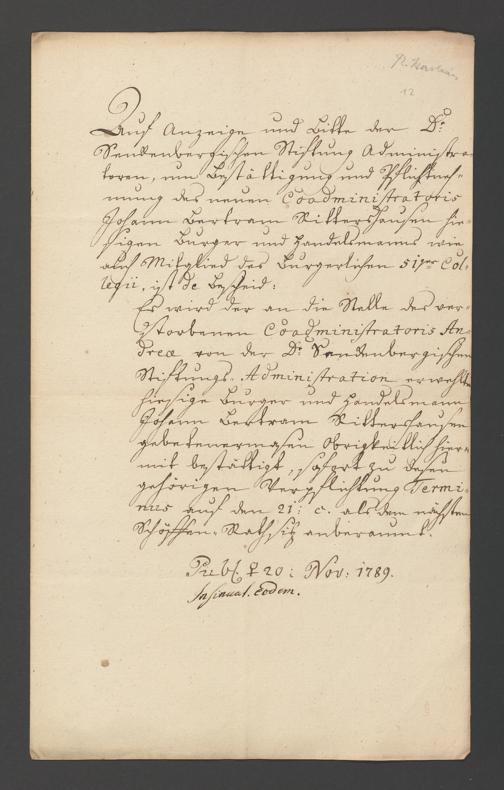 12
Auf Anzeige und Bitte der Dr.
Senckenbergischen Stiftung Administra-
toren, um Bestättigung und Pflichtneh-
mung des neuen Coadministratoris
Johann Bertram Rittershausen hie-
sigen Burger und Handelsmanns wie
auch Mitglied des Burgerlichen 51ger Col-
legii, ist der Bescheid:
Es wird der an die Stelle des ver-
storbenen Coadministratoris An-
dreæ von der Dr. Senckenbergischen
Stiftungs-Administration erwehlte
hiesige Burger und Handelsmann
Johann Bertram Rittershausen
gebetenermasen Obrigkeitlich hier-
mit bestättigt, sofort zu dessen
gehörigen Verpflichtung Termi-
nus auf den 21: c. als dem nächsten
Schöffen-Rathsitz anberaumt.
Publ. ♀ 20: Nov: 1789.
Insinuat. eodem.